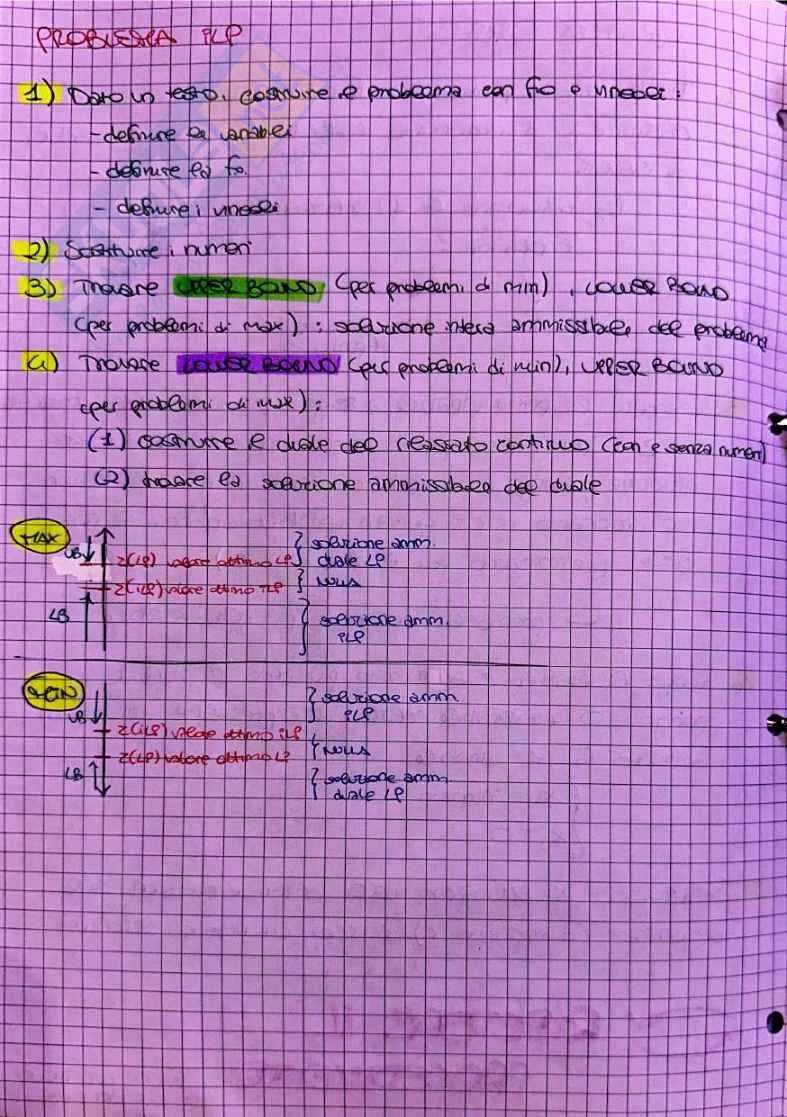 PROBLEMA ILP
1) Dato un testo, costruire il problema con fo e vincoli:
- definire le variabili
- definire la fo.
- definire i vincoli
2) Sostituire i numeri
3) Trovare UPPER BOUND (per problemi di min), LOWER BOUND
(per problemi di max): soluzione intera ammissibile del problema
4) Trovare LOWER BOUND (per problemi di min), UPPER BOUND
(per problemi di max):
(1) costruire il duale del rilassato continuo (con e senza numeri)
(2) trovare la soluzione ammissibile del duale
MAX
UB
z(LP) valore ottimo LP
} soluzione amm.
duale LP
z(ILP) valore ottimo ILP
} NULLA
LB
} soluzione amm.
ILP
MIN
UB
} soluzione amm.
ILP
z(ILP) valore ottimo ILP
} NULLA
z(LP) valore ottimo LP
LB
} soluzione amm.
duale LP